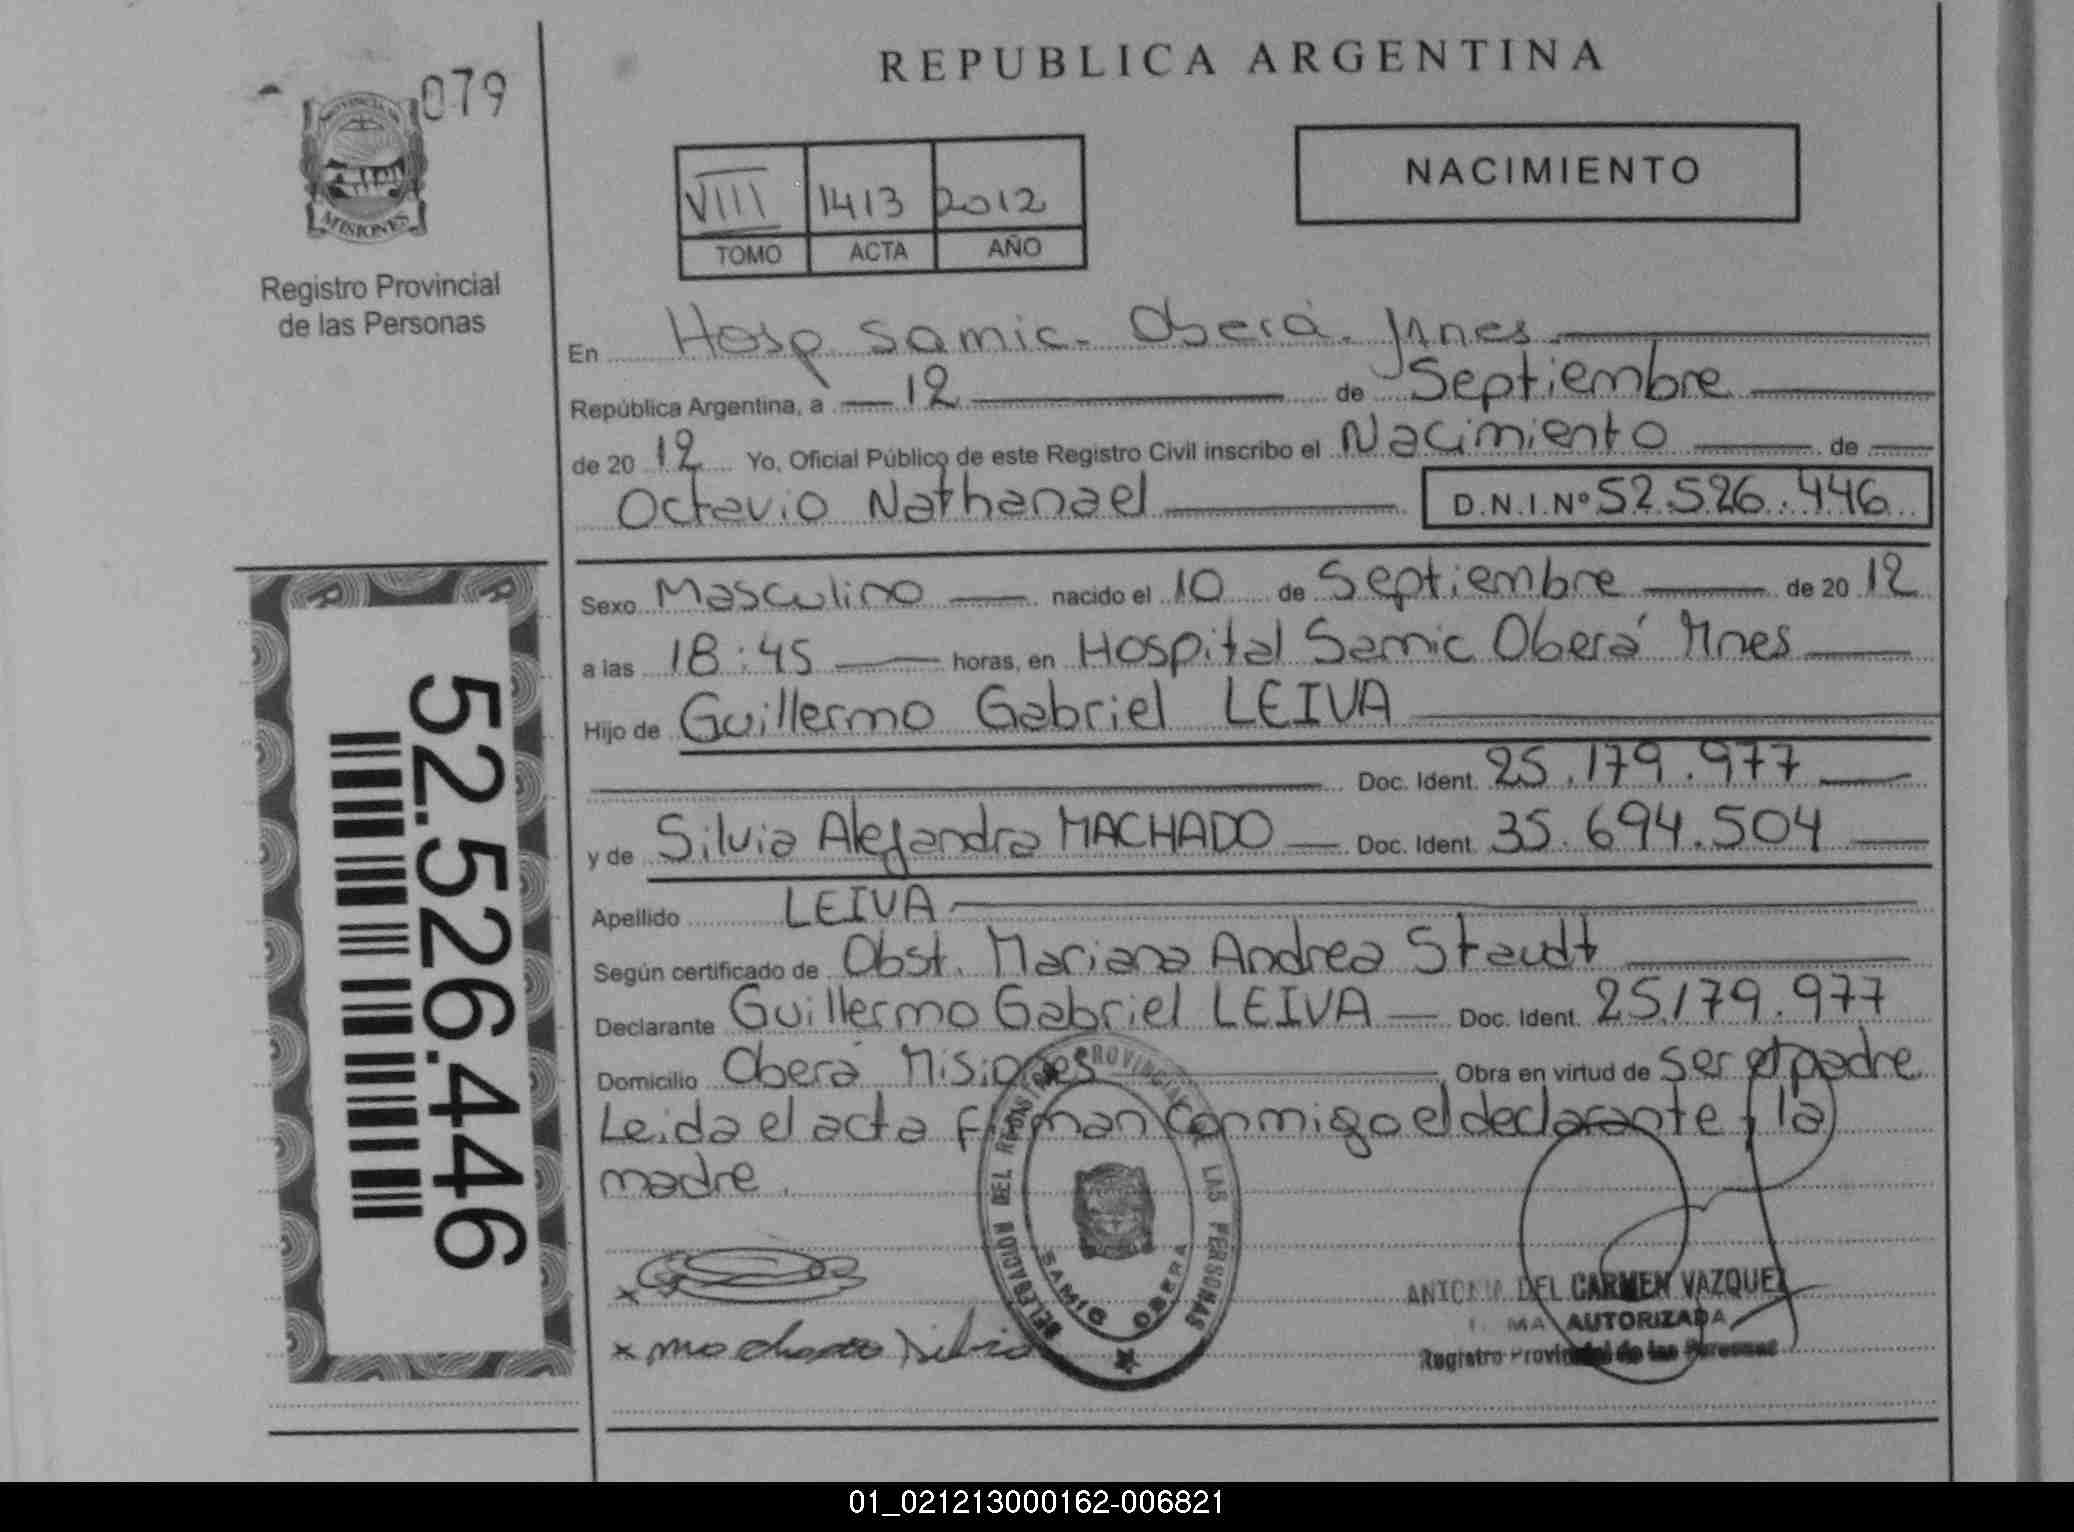 REPUBLICA ARGENTINA
079
PROVINCIA DE
MISIONES
Registro Provincial
de las Personas
NACIMIENTO
VIII 1413 2012
TOMO ACTA AÑO
En Hosp Samic. Oberá. Mnes
República Argentina, a 12 de Septiembre
de 20 12 Yo, Oficial Público de este Registro Civil inscribo el Nacimiento de
Octavio Nathanael D.N.I.Nº 52.526.446
Sexo Masculino nacido el 10 de Septiembre de 20 12
a las 18:45 horas, en Hospital Samic Oberá Mnes
Hijo de Guillermo Gabriel LEIVA
Doc. Ident. 25.179.977
y de Silvia Alejandra MACHADO Doc. Ident. 35.694.504
Apellido LEIVA
Según certificado de Obst. Mariana Andrea Staudt
Declarante Guillermo Gabriel LEIVA Doc. Ident. 25.179.977
Domicilio Oberá Misiones Obra en virtud de ser el padre
Leida el acta firman conmigo el declarante y la
madre.
52.526.446
DELEGACION DEL REGISTRO PROVINCIAL DE LAS PERSONAS
SAMIC OBERA
x
x Machado Silvia
ANTONIA DEL CARMEN VAZQUEZ
AUTORIZADA
Registro Provincial de las Personas
01_021213000162-006821